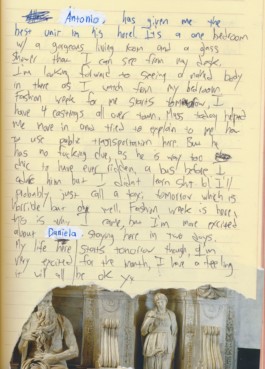 Antonio, has given me the
best unit in his hotel Its a one bedroom
w/ a gorgeous living room and a glass
shower that I can see from my desk.
I'm looking forward to seeing a naked body
in there as I watch from my bedroom
Fashion week for me starts tomorrow, I
have 4 castings all over town, today helped
me move in and tried to explain to me how
to use public transportation here But he
has no fucking clue, as he is way too
chic to have ever ridden a bus before I
him but I didn't learn shit I'll
probably just call a taxi tomorrow which is
horrible but oh well. Fashion week is here
this is why I came, but I'm most excited
about Daniela staying here in two days.
My life here starts tomorrow though, I am
very excited for the month, I have a feeling
it will all be ok